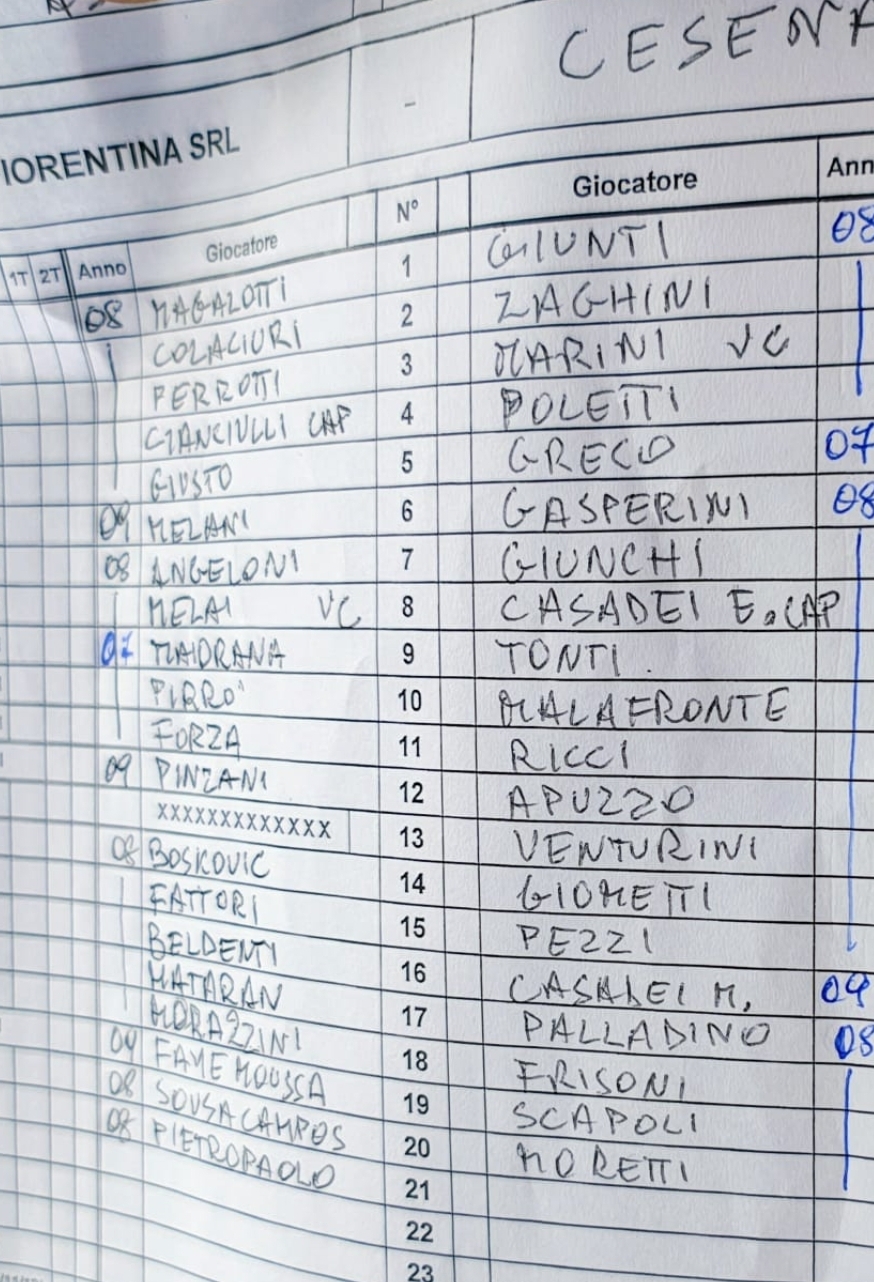 CESENA
IORENTINA SRL -
1T 2T Anno Giocatore N° Giocatore Ann
08 MAGALOTTI 1 GIUNTI 08
COLACIURI 2 ZAGHINI
PERROTTI 3 MARINI VC
CIANCIULLI CAP 4 POLETTI
GIUSTO 5 GRECO 07
09 MELANI 6 GASPERINI 08
08 ANGELONI 7 GIUNCHI
MELAI VC 8 CASADEI E. CAP
07 MAIORANA 9 TONTI
PIRRO' 10 MALAFRONTE
FORZA 11 RICCI
09 PINZANI 12 APUZZO
XXXXXXXXXXXXX 13 VENTURINI
08 BOSKOVIC 14 GIOMETTI
FATTORI 15 PEZZI
BELDENTI 16 CASADEI M. 09
MATARAN 17 PALLADINO 08
MORAZZINI 18 FRISONI
09 FAYE MOUSSA 19 SCAPOLI
08 SOUSA CAMPOS 20 MORETTI
08 PIETROPAOLO 21
22
23